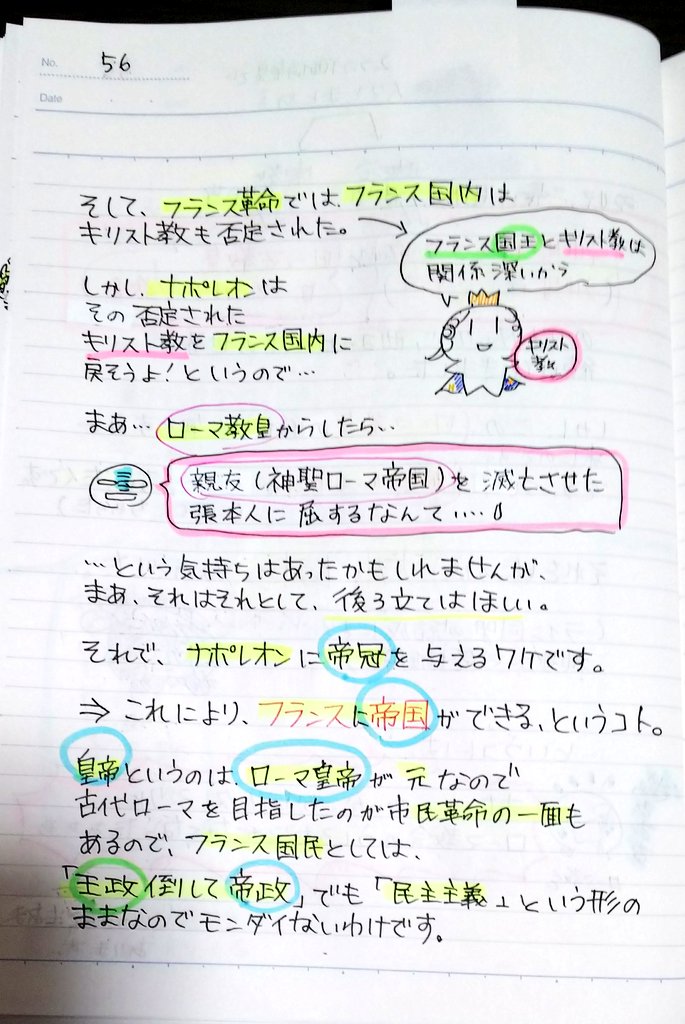 No. 56
Date
そして、フランス革命では、フランス国内は
キリスト教も否定された。
フランス国王とキリスト教は
関係深いから
しかし、ナポレオンは
その否定された
キリスト教をフランス国内に
戻そうよ!というので…
キリスト
教
まあ… ローマ教皇からしたら…
親友(神聖ローマ帝国)を滅亡させた
張本人に屈するなんて……
…という気持ちはあったかもしれませんが、
まあ、それはそれとして、後ろ立てはほしい。
それで、ナポレオンに帝冠を与えるワケです。
⇒ これにより、フランスに帝国ができる、というコト。
皇帝というのは、ローマ皇帝が元なので
古代ローマを目指したのが市民革命の一面も
あるので、フランス国民としては、
「王政倒して帝政」でも「民主主義」という形の
ままなのでモンダイないわけです。